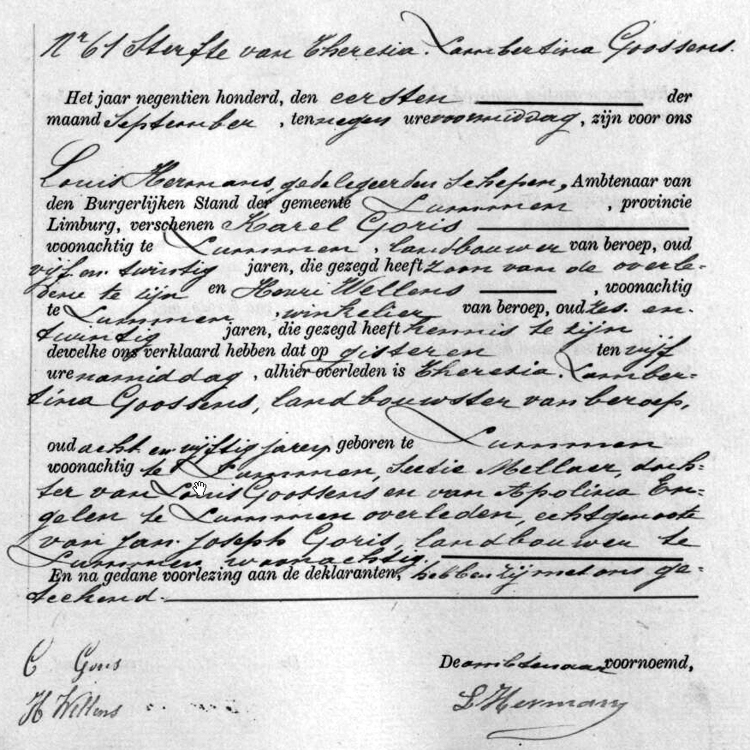 Nr 61 Sterfte van Theresia Lambertina Goossens.
Het jaar negentien honderd, den eersten der
maand September, ten negen ure voormiddag, zijn voor ons
Louis Hermans, gedelegeerden Schepen, Ambtenaar van
den Burgerlijken Stand der gemeente Lummen, provincie
Limburg, verschenen Karel Goris
woonachtig te Lummen, landbouwer van beroep, oud
vijf en twintig jaren, die gezegd heeft zoon van de overle-
dene te zijn en Henri Wellens, woonachtig
te Lummen, winkelier van beroep, oud zes en
twintig jaren, die gezegd heeft kennis te zijn
dewelke ons verklaard hebben dat op gisteren ten vijf
ure namiddag, alhier overleden is Theresia Lamber-
tina Goossens, landbouwster van beroep,
oud acht en vijftig jaren geboren te Lummen
woonachtig te Lummen, Sectie Mellaer, doch-
ter van Louis Goossens en van Apolina En-
gelen te Lummen overleden, echtgenoote
van Jan Joseph Goris, landbouwer te
Lummen woonachtig.
En na gedane voorlezing aan de deklaranten, hebben zij met ons ge-
teekend.
C Goris
De ambtenaar voornoemd,
H Wellens
L Hermans